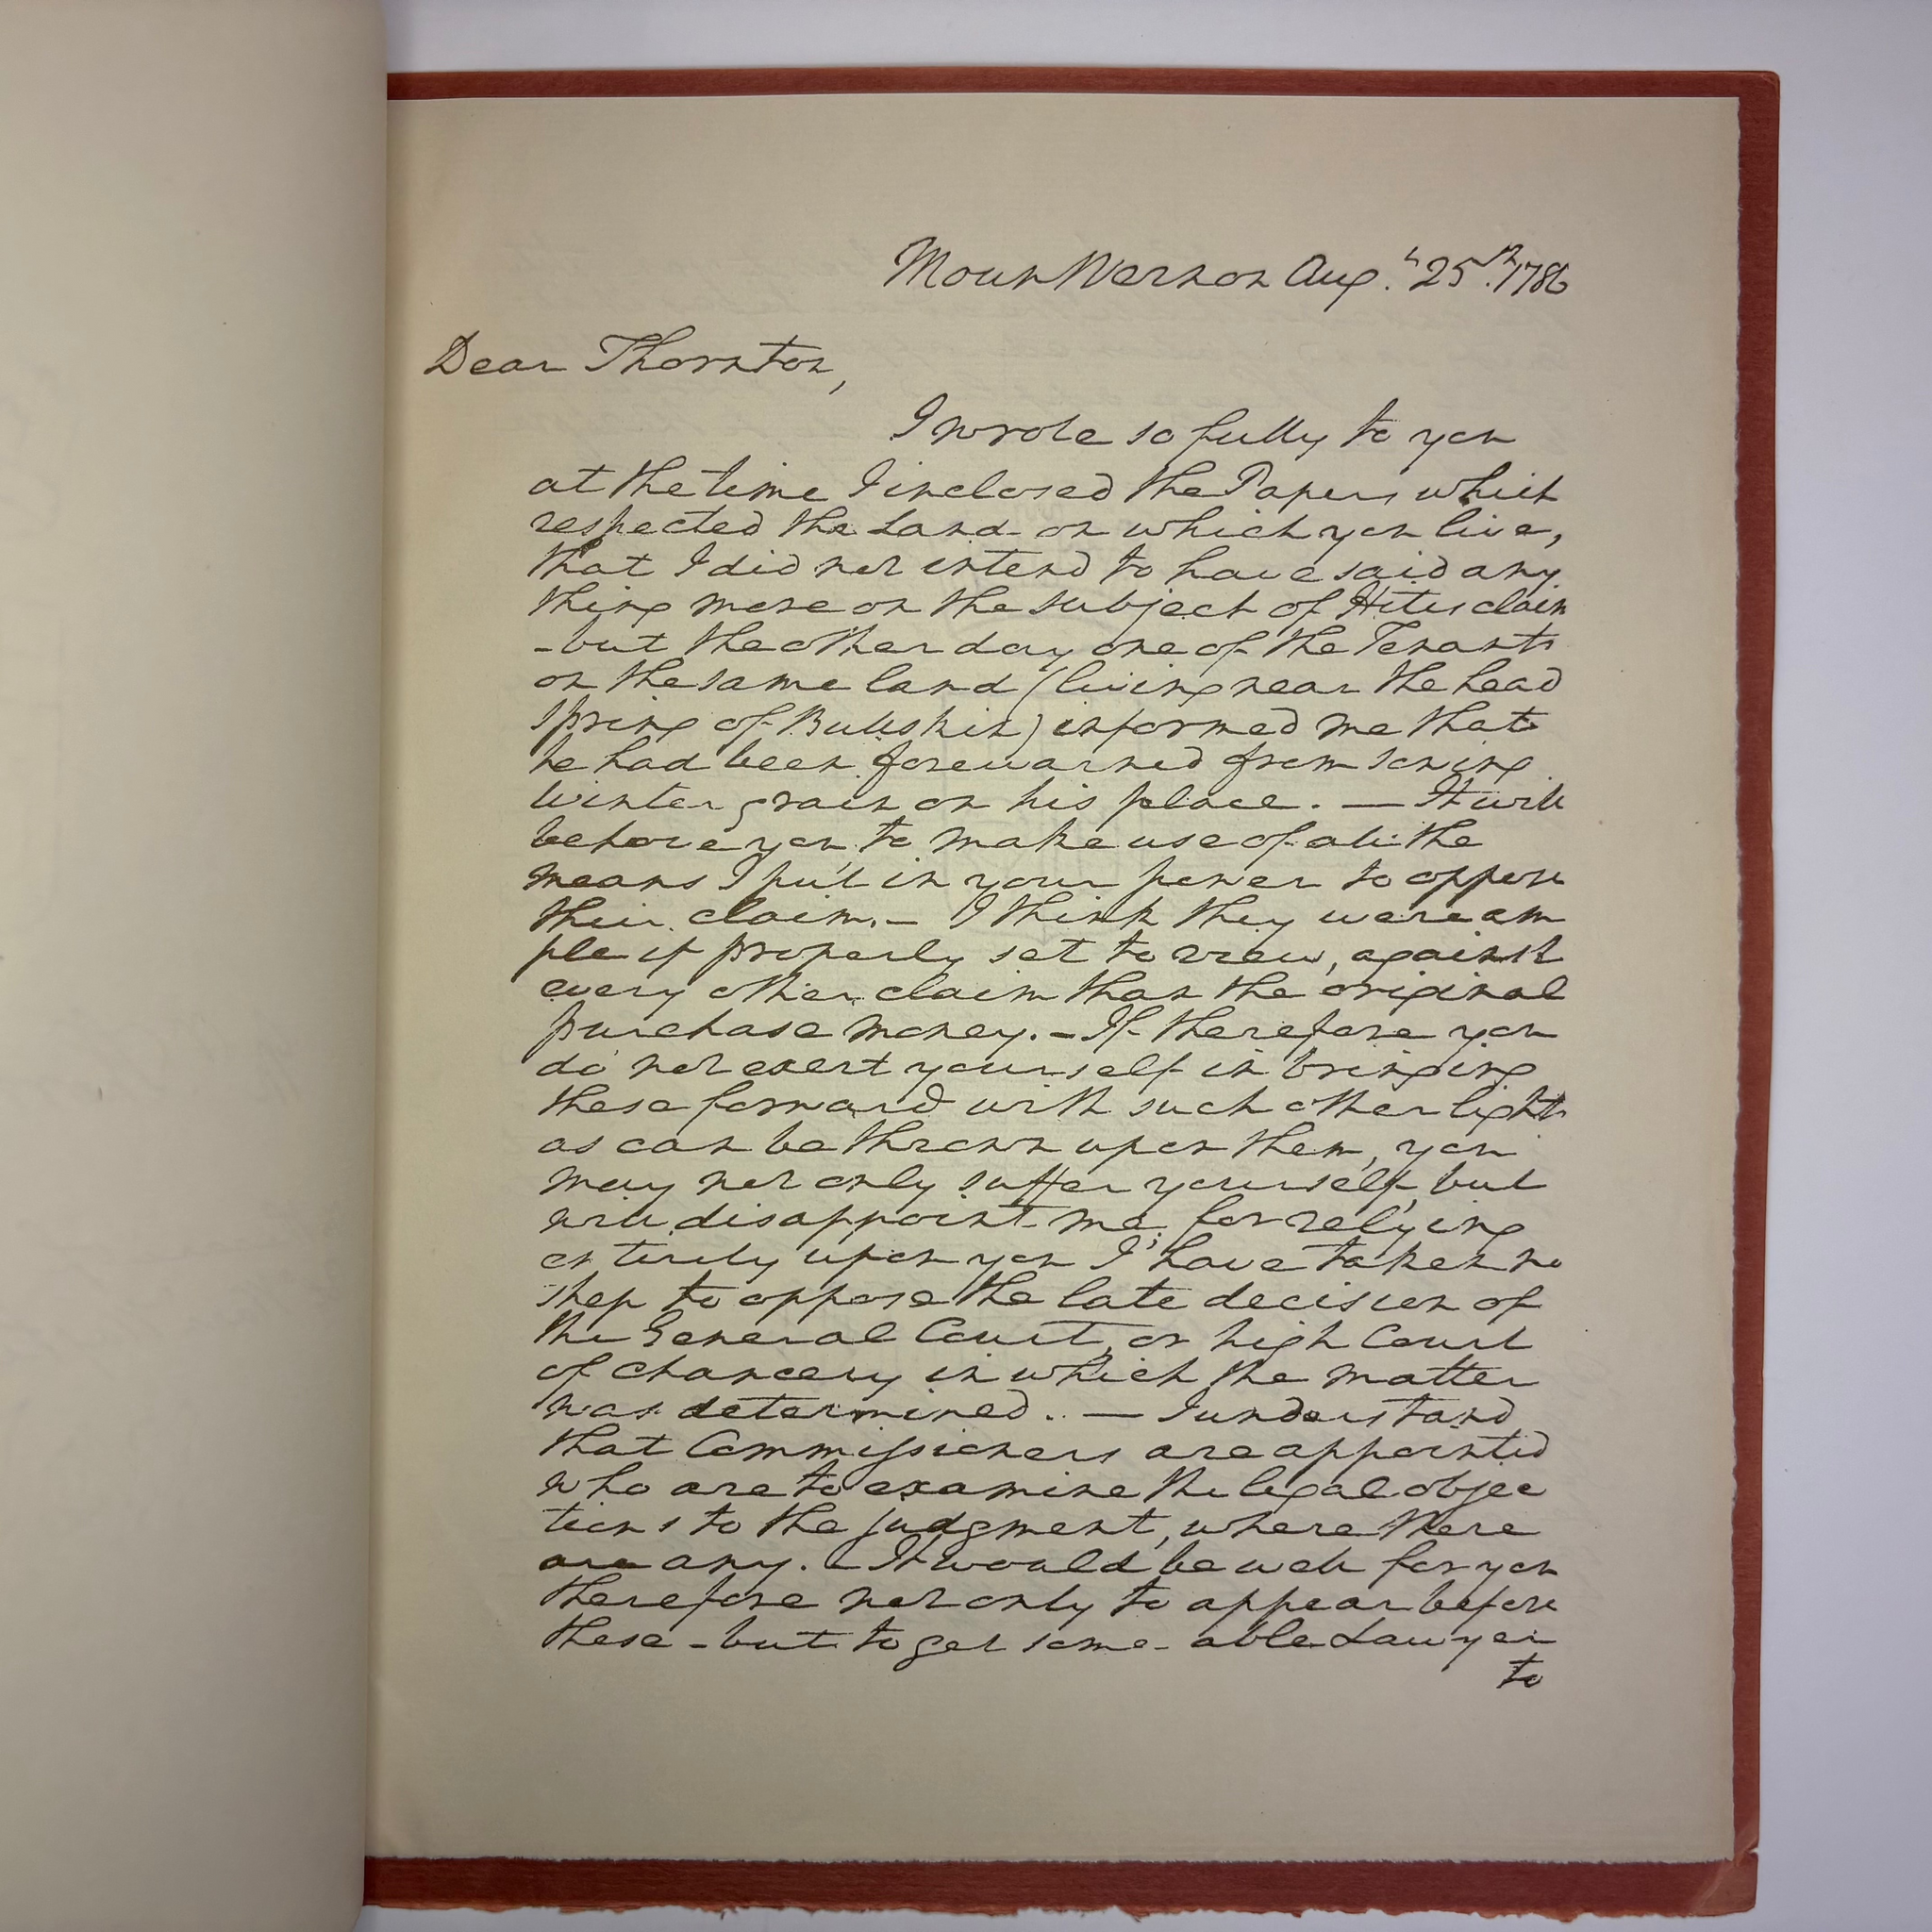 Mount Vernon Aug.t 25th. 1786
Dear Thornton,
I wrote so fully to you
at the time I inclosed the Papers which
respected the Land on which you live,
that I did not intend to have said any
thing more on the subject of Hites claim
-but the other day one of the Tenants
on the same land (living near the head
spring of Bullskin) informed me that
he had been forewarned from sowing
winter grain on his place. — It will
behove you to make use of all the
means I put in your power to oppose
their claim. — I think they were am
ple if properly set to view, against
every other claim than the original
purchase money. - If therefore you
do not exert yourself in bringing
these forward with such other lights
as can be thrown upon them, you
may not only suffer yourself, but
will disappoint me; for relying
entirely upon you I have taken no
step to oppose the late decision of
the General Court, or high Court
of chancery in which the matter
was determined. — I understand
that Commissioners are appointed
who are to examine the legal objec
tions to the judgment, where there
are any. - It would be well for you
therefore not only to appear before
these - but to get some able Lawyer
to